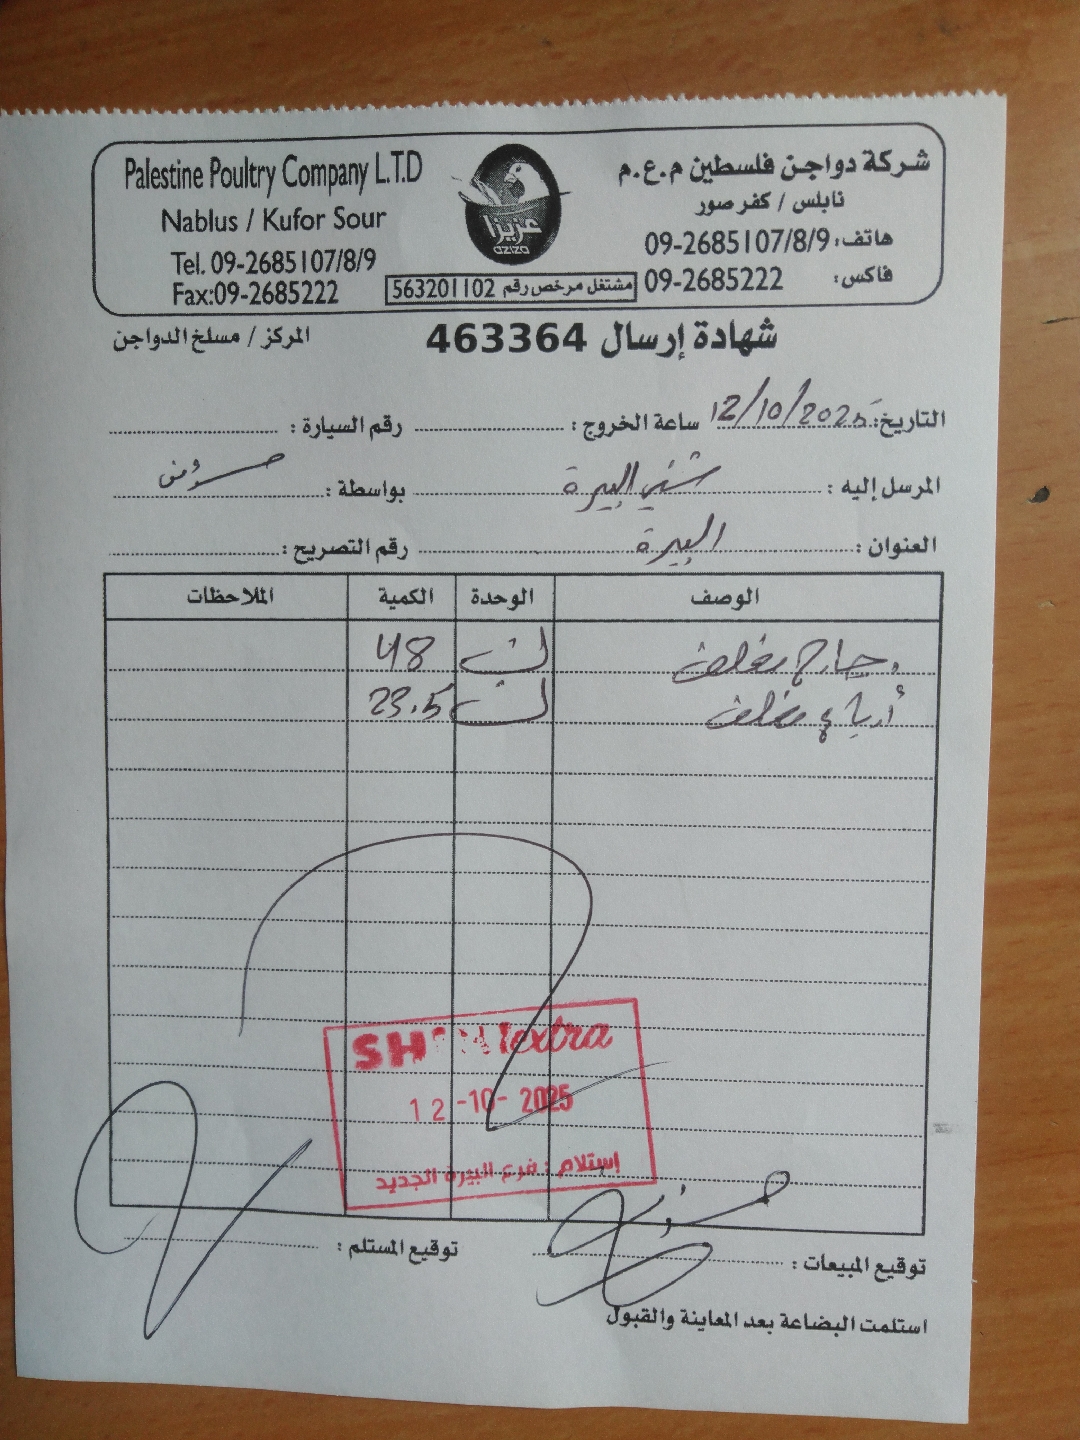 Palestine Poultry Company L.T.D
Nablus / Kufor Sour
Tel. 09-2685107/8/9
Fax:09-2685222
عزيزا
aziza
مشتغل مرخص رقم 563201102
شركة دواجن فلسطين م.ع.م
نابلس / كفر صور
هاتف: 09-2685107/8/9
فاكس: 09-2685222
شهادة إرسال 463364
المركز / مسلخ الدواجن
التاريخ: 12/10/2025 ساعة الخروج: رقم السيارة:
المرسل إليه: شني البيرة بواسطة:
العنوان: البيرة رقم التصريح:
الوصف الوحدة الكمية الملاحظات
دجاج مغلف ك 48
أرباع مغلف ك 23.5
extra
12-10-2025
إستلام: فرع البيرة الجديد
توقيع المبيعات: توقيع المستلم:
استلمت البضاعة بعد المعاينة والقبول